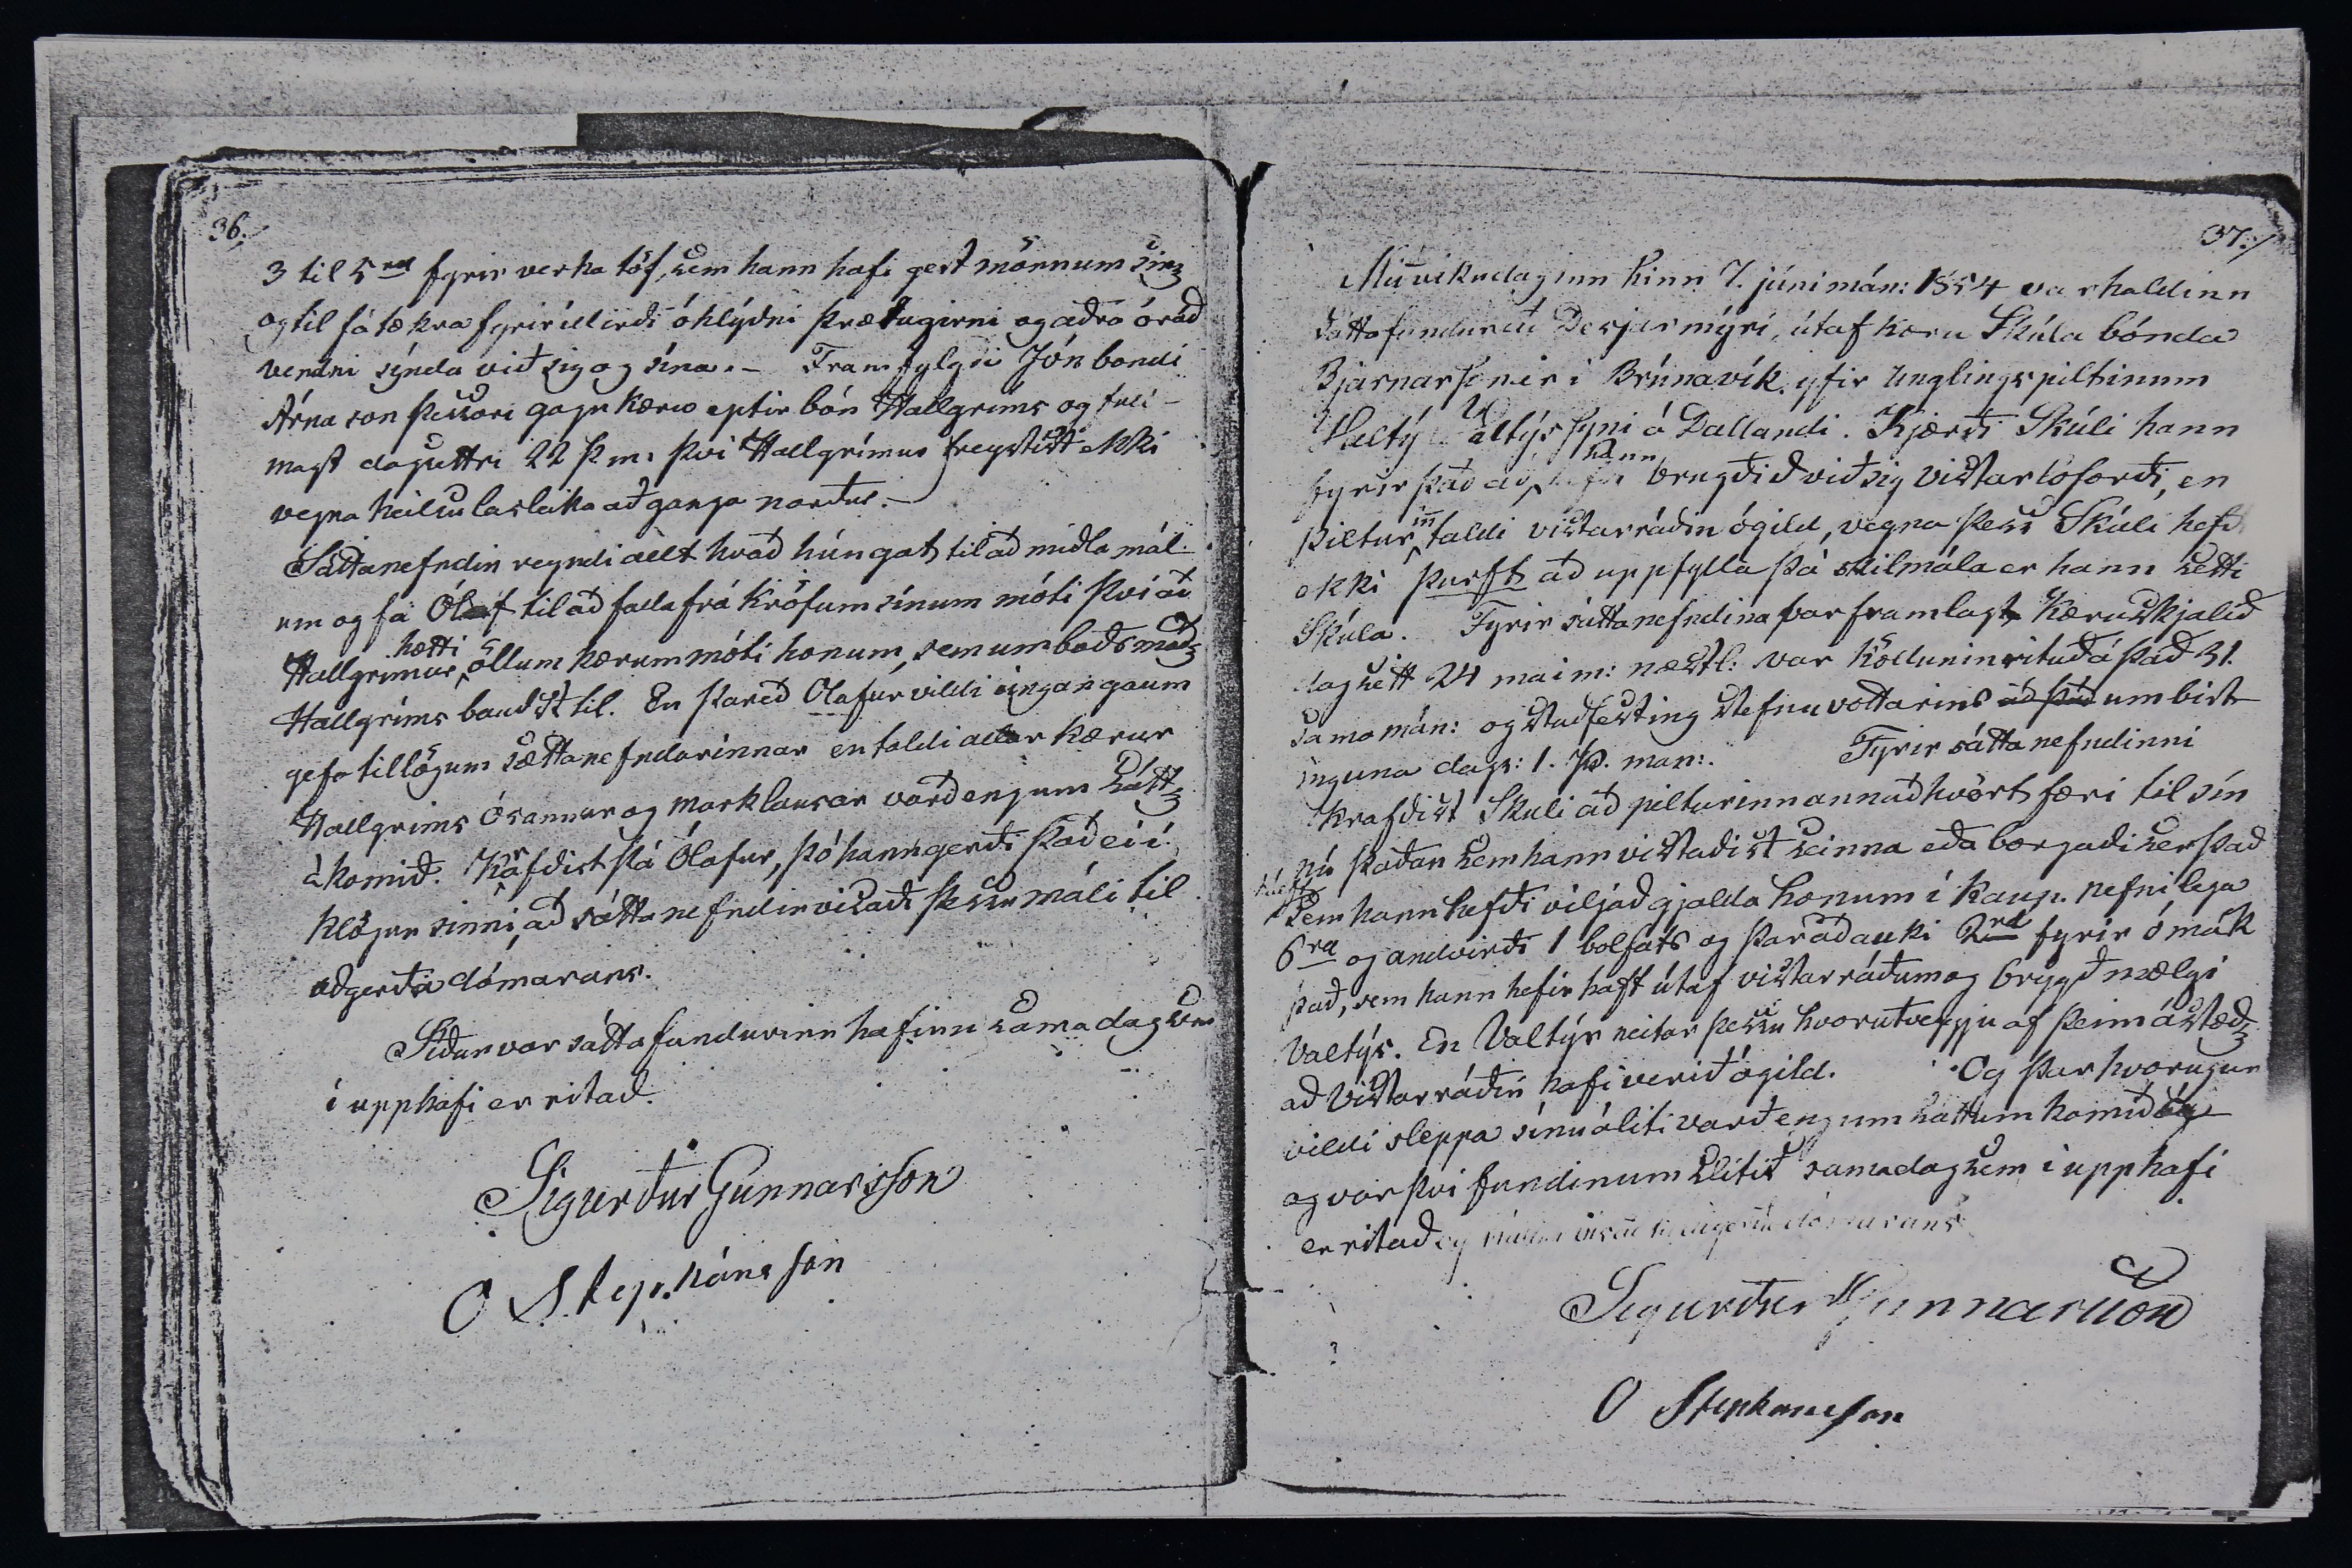 36.
3 til 5rd fyrir verka töf, sem hann hafi gert mönnum sín,
og til fátækra fyrir illirði óhlýðni þrætugirni og aðra óráð
vendni sýnda við sig og sína. - Framfylgir Jón bondi
Árnason þessari gagnkæru eptir bón Hallgríms og full-
magt dagsettri 22 þ.m. því Hallgrímur treystist ekki
vegna heilsulasleika að ganga norður. -
Sáttanefndin reyndi allt hvað hún gat til að miðla mál-
um og fá Ólaf til að falla frá kröfum sínum móti því að
hætti
Hallgrímur öllum kærum móti honum, sem umboðsmað
Hallgríms bauðst til. En þareð Olafur vildi eingan gaum
gefa tillögum sættanefndarinnar en taldi allar kærur
Hallgríms ósannar og marklausar varð engum sátt
ákomið. Krafðist þá Ólafur, þó hann gerði það ei í
klögun sinni, að sáttanefndin vísaði þessu máli til
aðgerða dómarans.
Síðan var sáttafundurinn hafinn sama dag sem
í upphafi er ritað.
Sigurður Gunnarsson
O Stephánsson
37.
Miðvikudaginn hinn 7. júni mán: 1854 var haldinn
sáttafundur að Desjarmýri, útaf kæru Skúla bónda
Bjarnarsonar í Brúnavík yfir unglingspiltinum
Valtý Valtýssyni á Dallandi. Kjærði Skúli hann
hann
fyrir það að hafa brugðið við sig vistarloforði, en
pilturinn taldi vistarráðin ógild, vegna þess Skúli hefði
ekki þurft að uppfylla þá skilmála er hann setti
Skúla. Fyrir sáttanefndina var framlagt kæruskjalið
dagsett 24 mai m: næstl: var köllunin rituð á það 31.
sama mán: og staðfesting stefnuvottarins að það um birt
inguna dags: 1. þ. mán:. Fyrir sáttanefndinni
krafðist Skuli að pilturinn annaðhvört færi til sín
nú þaðan sem hann vistaðist seinna eða borgaði sér það
sem hann hefði viljað gjalda honum í kaup. nefnilega
6rd og andvirði 1 bolfats og þaraðauki 2rd fyrir ómak
það, sem hann hefir haft útaf vistarráðum og brygðmælgi
Valtýs. En Valtýr neitar þessu hvorutveggju af þeim ástæð
að vistarráðin hafi verið ógild. Og þar hvorugur
vildi sleppa sínu áliti varð engum sáttum komið á
og var því fundinum slitið sama dag sem í upphafi
er ritað og málinu vísað til aðgerða dómarans
Sigurður Gunnarsson
O Stephansson